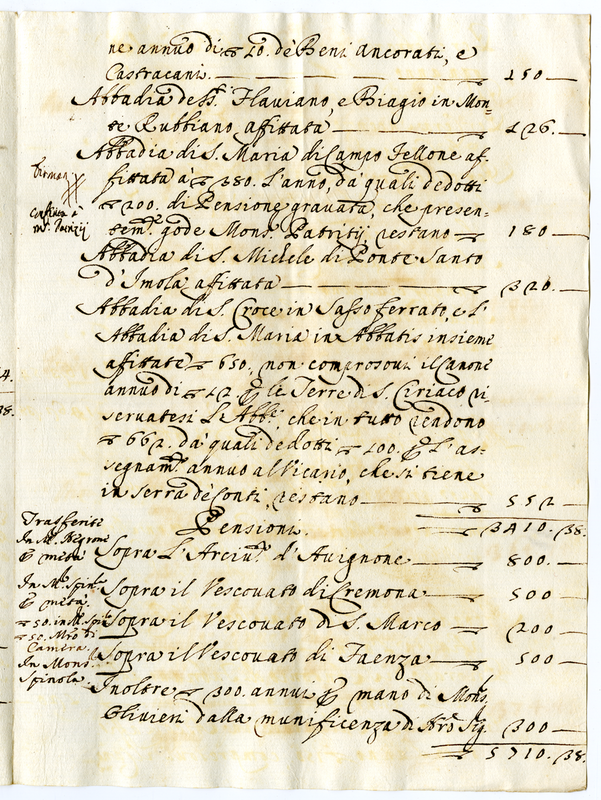 ne annuo di ∇ 10. de Beni ancorati, e
Castracani. 150
Abbadia de SS. Flaviano, e Biagio in Mon-
te Rubbiano affittata 426.
Abbadia di S. Maria di Campo Fellone af-
fittata à ∇ 380. l'anno, da quali dedotti
∇ 200. di Pensione gravata, che presen-
tem.te gode Mons. Patritij, restano 180
Abbadia di S. Michele di Ponte Santo
d'Imola affittata 320.
Abbadia di S. Croce in Sasso ferrato, e l'
Abbadia di S. Maria in Abbatis insieme
affittate ∇ 650. non compresovi il Canone
annuo di ∇ 12. p le Terre di S. Ciriaco ri
servatesi l'Abb.e, che in tutto rendono
∇ 662. da quali dedotti ∇ 100. p l'as-
segnam.to annuo al Vicario, che si tiene
in Serra de Conti, restano 552
Pensioni. 3410. 38.
Trasferite
In M.
p metà
Sopra l'Arciv.to d'Avignone 800.
In M. Spin.
p metà.
Sopra il Vescovato di Cremona 500
∇ 50. in M. Spi
∇ 50. Mro di
Camera.
Sopra il Vescovato di S. Marco 200
In Mons.
Spinola.
Sopra il Vescovato di Faenza 500
Inoltre ∇ 300. annui p mano di Mons.
Olivieri dalla munificenza di Nro Sig. 300
5710. 38.
4.
38.